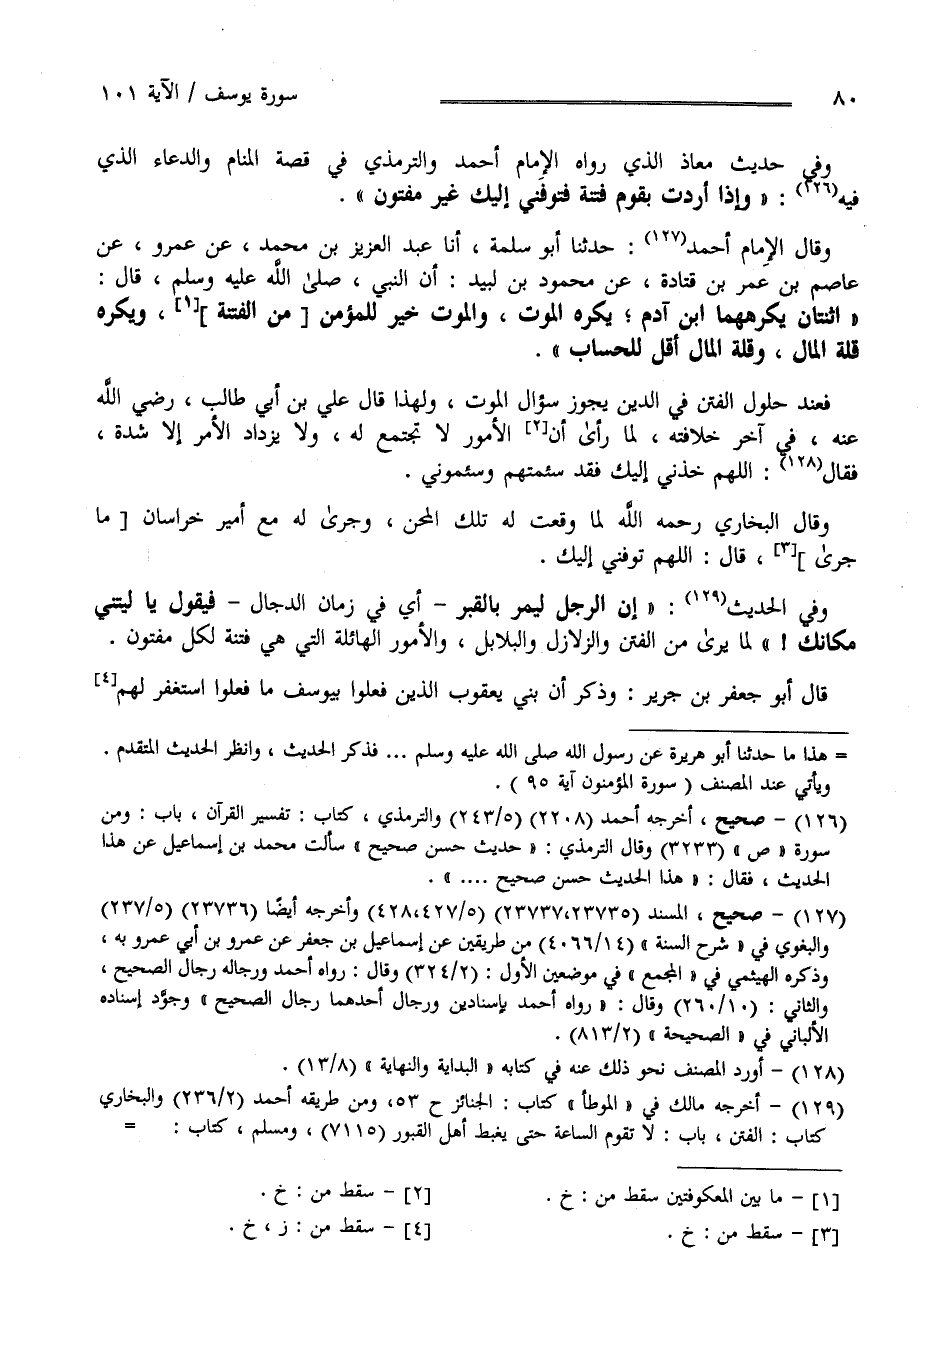 ٨٠ سورة يوسف / الآية ١٠١
وفي حديث معاذ الذي رواه الإمام أحمد والترمذي في قصة المنام والدعاء الذي
فيه(١٢٦) : « وإذا أردت بقوم فتنة فتوفني إليك غير مفتون » .
وقال الإمام أحمد(١٢٧) : حدثنا أبو سلمة ، أنا عبد العزيز بن محمد ، عن عمرو ، عن
عاصم بن عمر بن قتادة ، عن محمود بن لبيد : أن النبي ، صلىٰ اللَّه عليه وسلم ، قال :
« اثنتان يكرههما ابن آدم ؛ يكره الموت ، والموت خير للمؤمن [ من الفتنة ][١] ، ويكره
قلة المال ، وقلة المال أقل للحساب » .
فعند حلول الفتن في الدين يجوز سؤال الموت ، ولهذا قال علي بن أبي طالب ، رضي اللَّه
عنه ، في آخر خلافته ، لما رأىٰ أن[٢] الأمور لا تجتمع له ، ولا يزداد الأمر إلا شدة ،
فقال(١٢٨) : اللهم خذني إليك فقد سئمتهم وسئموني .
وقال البخاري رحمه اللَّه لما وقعت له تلك المحن ، وجرىٰ له مع أمير خراسان [ ما
جرىٰ ][٣] ، قال : اللهم توفني إليك .
وفي الحديث(١٢٩) : « إن الرجل ليمر بالقبر – أي في زمان الدجال – فيقول يا ليتني
مكانك ! » لما يرىٰ من الفتن والزلازل والبلابل ، والأمور الهائلة التي هي فتنة لكل مفتون .
قال أبو جعفر بن جرير : وذكر أن بني يعقوب الذين فعلوا بيوسف ما فعلوا استغفر لهم[٤]
= هذا ما حدثنا أبو هريرة عن رسول الله صلى الله عليه وسلم ... فذكر الحديث ، وانظر الحديث المتقدم .
ويأتي عند المصنف ( سورة المؤمنون آية ٩٥ ) .
(١٢٦) – صحيح ، أخرجه أحمد (٢٢٠٨) (٢٤٣/٥) والترمذي ، كتاب : تفسير القرآن ، باب : ومن
سورة « ص » (٣٢٣٣) وقال الترمذي : « حديث حسن صحيح » سألت محمد بن إسماعيل عن هذا
الحديث ، فقال : « هذا الحديث حسن صحيح .... » .
(١٢٧) – صحيح ، المسند (٢٣٧٣٧،٢٣٧٣٥) (٤٢٨،٤٢٧/٥) وأخرجه أيضًا (٢٣٧٣٦) (٢٣٧/٥)
والبغوي في « شرح السنة » (٤٠٦٦/١٤) من طريقين عن إسماعيل بن جعفر عن عمرو بن أبي عمرو به ،
وذكره الهيثمي في « المجمع » في موضعين الأول : (٣٢٤/٢) وقال : رواه أحمد ورجاله رجال الصحيح ،
والثاني : (٢٦٠/١٠) وقال : « رواه أحمد بإسنادين ورجال أحدهما رجال الصحيح » وجوَّد إسناده
الألباني في « الصحيحة » (٨١٣/٢) .
(١٢٨) – أورد المصنف نحو ذلك عنه في كتابه « البداية والنهاية » (١٣/٨) .
(١٢٩) – أخرجه مالك في « الموطأ » كتاب : الجنائز ح ٥٣، ومن طريقه أحمد (٢٣٦/٢) والبخاري
كتاب : الفتن ، باب : لا تقوم الساعة حتى يغبط أهل القبور (٧١١٥) ، ومسلم ، كتاب : =
[١] – ما بين المعكوفتين سقط من : خ . [٢] – سقط من : خ .
[٣] – سقط من : خ . [٤] – سقط من : ز ، خ .